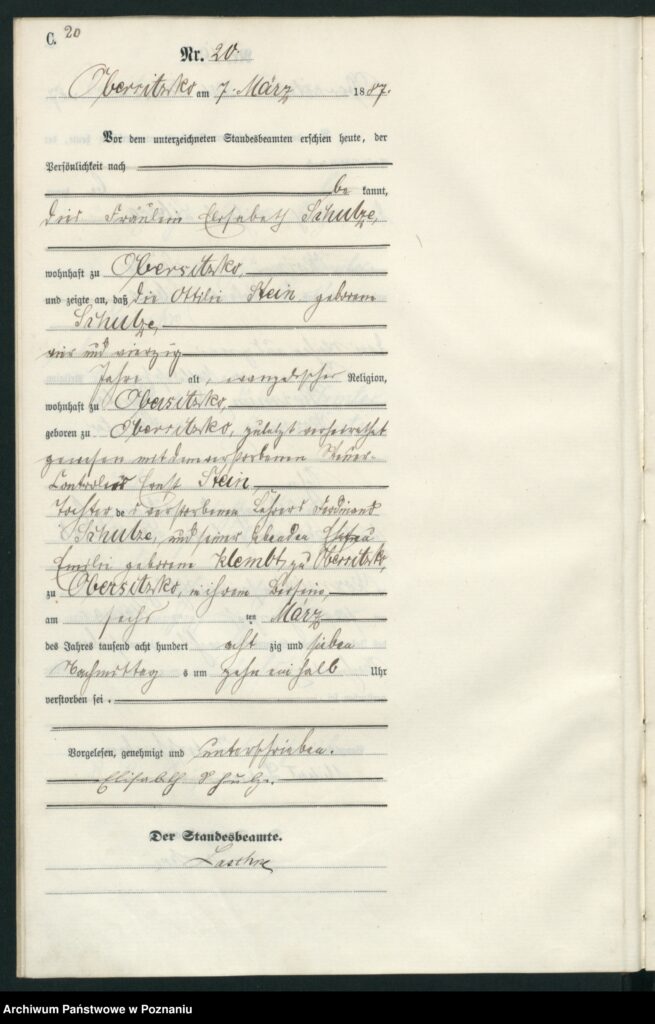 C. 20
Nr. 20.
Obersitzko am 7. März 1887.
Vor dem unterzeichneten Standesbeamten erschien heute, der
Persönlichkeit nach
be kannt,
das Fräulein Elisabeth Schulze,
wohnhaft zu Obersitzko,
und zeigte an, daß die Ottilie Stein geborene
Schulze,
vier und vierzig
Jahre alt, evangelischer Religion,
wohnhaft zu Obersitzko,
geboren zu Obersitzko, zuletzt verheirathet
gewesen mit dem verstorbenen Steuer-
Controleur Ernst Stein,
Tochter des verstorbenen Lehrers Ferdinand
Schulze, und seiner Ehefrau
Emilie geborene Klembt, zu Obersitzko,
zu Obersitzko, in ihrem Beisein,
am sechs ten März
des Jahres tausend acht hundert acht zig und sieben
Nachmittag s um zehn ein halb Uhr
verstorben sei.
Vorgelesen, genehmigt und unterschrieben.
Elisabeth Schulze.
Der Standesbeamte.
Archiwum Państwowe w Poznaniu